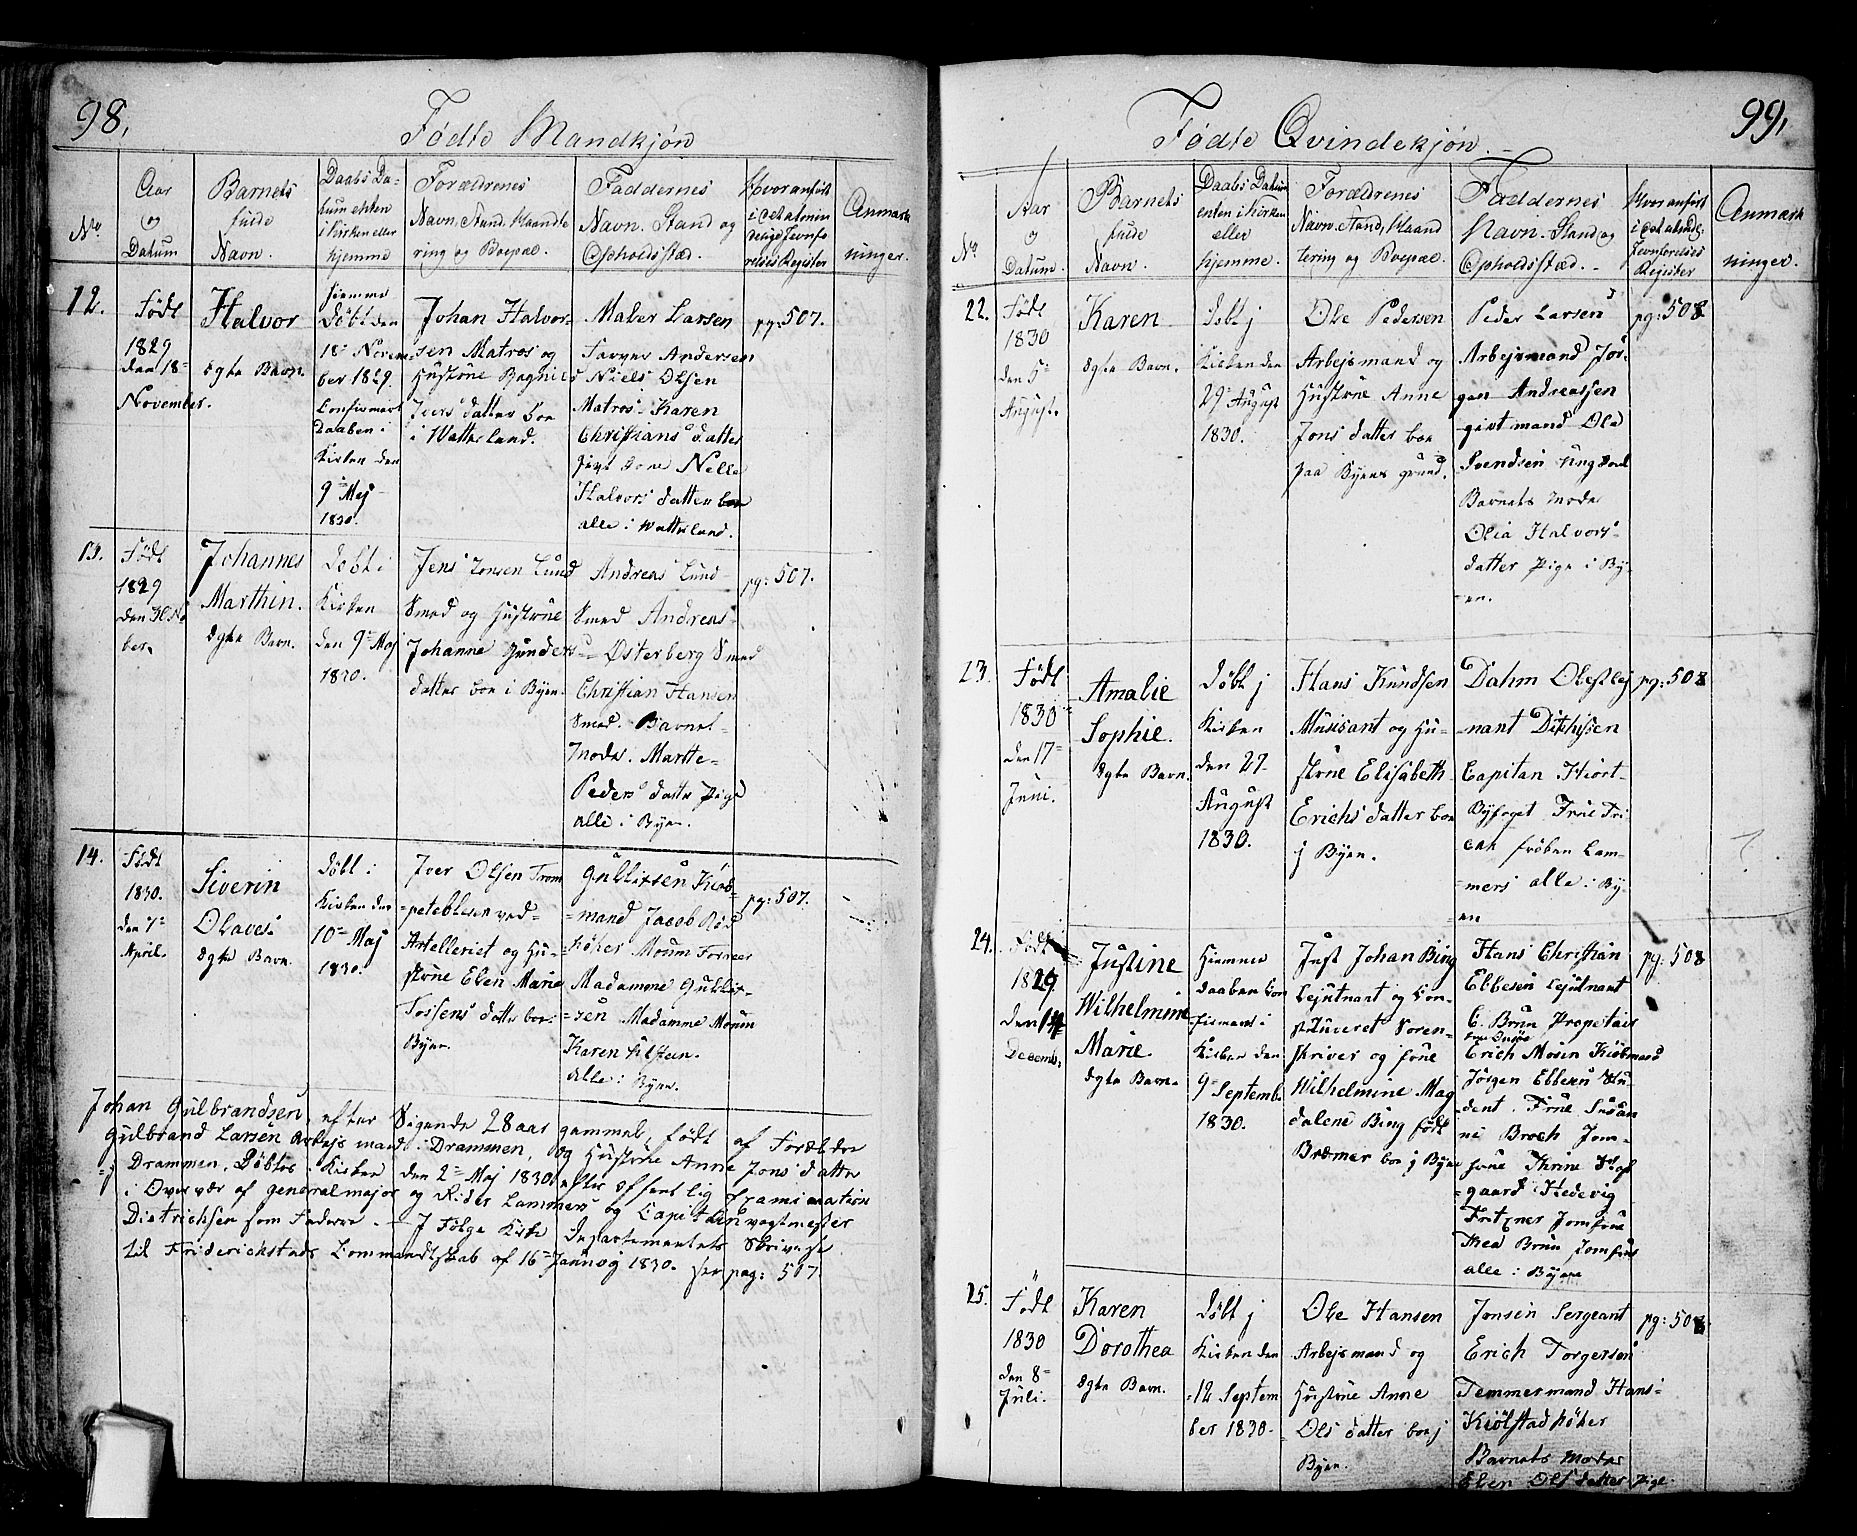 98,
Fødte Mandkjøn
No
Aar
og
Datum
Barnets
fulde
Navn.
Daabs Da-
tum enten
i Kirken eller
hjemme
Forældrenes
Navn, Stand, Haandte
ring og Boepæl.
Faddernes
Navn. Stand og
Opholdsstæd.
Hvor anført
i det almin
delige Jevnfø
relses Register
Anmærk
ninger.
12.
Født
1829
den 18-
November.
Halvor
ægte Barn.
hjemme
døbt den
18- Novem
ber 1829
Confirmert
Daaben i
Kirken den
9- Maj
1830.
Johan Halvor-
sen Matros og
Hustrue Ragnild
Ivers datter boe
i Watterland.
Maler Larsen
Farver Andersen
Niels Olsen
Matros- Karen
Christians datter
givt kone Nelle
Halvors datter boe
alle i Watterland.
pg: 507.
13.
Født
1829
den 30 No
ber.
Johannes
Marthin.
ægte Barn.
døbt i
Kirken
den 9- Maj
1830.
Jens Jonsen Lund
Smed og Hustrue
Johanne Gunders
datter boe i Byen.
Andreas Lund-
Smed Andreas-
Østerberg Smed
Christian Hansen
Smed. Barnet-
Moder. Marthe-
Peders datter Pige
alle i Byen.
pg: 507.
14.
Født
1830.
den 7-
April.
Siverin
Olaves.
ægte Barn.
døbt i
Kirken den
10- Maj
1830.
Iver Olsen Trom
-petblæser ved-
Artelleriet og Hu-
strue Elen Marie
Tossens datter boe i
Byen.
Gullixsen Kiøb-
=mand Jacob Rød
høker Moum Forneer
Madamme Gullix-
=sen Madamme Moum
Karen Gilstein.
alle i Byen.
pg: 507.
Johan Gulbrandsen, efter Sigende 28 aar gammel, født af Forældre
Gulbrand Larsen Arbejsmand i Drammen, og Hustrue Anne Jons datter
=j Drammen, Døbtes i Kirken den 2- Maj 1830 efter offentlig Examination
i Overvær af Generalmajor og Rider Lammers og Capitain vagtmester
Dietrichsen som Faddere. - J Følge Kirke Departementets Skrivelse
til Friderichstads Commandtskab af 16- Januaj 1830. see pag: 507.
99,
Fødte Qvindekjøn.
No.
Aar
og
Datum.
Barnets
fulde
Navn.
Daabs Datum
enten i Kirken
eller
hjemme.
Forældrenes
Navn, Stand, Haand
tering og Boepæl.
Faddernes
Navn. Stand og
Opholdsstæd.
Hvor anført
i det almindl:
Jevnførelses
Register
Anmærk
ninger.
22.
Født
1830
den 5-
August.
Karen
ægte Barn.
døbt j
Kirken den
29- August
1830.
Ole Pedersen
Arbejsmand og
Hustrue Anne
Jons datter boe
paa Byens grund.
Peder Larsen
Arbejsmand Jør-
gen Andreassen
givt mand Ole
Svendsen ungkarl
Barnets Moder
Olia Halvors-
datter Pige i By-
-en.
pg: 508
23.
Født
1830
den 17-
Juni.
Amalie
Sophie.
ægte Barn.
døbt j
Kirken
den 27-
August
1830.
Hans Knudsen
Musicant og Hu-
strue Elisabeth
Erichs datter boe
j Byen.
Dahm Obestlej
-nant Ditrichsen
Capitan Hiort-
Byfoget Frue Tri
cak frøken Lam-
=mers alle i By
en
pg: 508
24.
Født
1829
den 14
Decemb.
Justine
Wilhelmine
Marie.
ægte Barn.
Hiemme
daaben con
firmert i
Kirken den
9- Septemb
1830.
Just Johan Bing
Lejutnant og Con-
stitueret Soren-
skriver og frue
Wilhelmine Mag
dalene Bing født
Bræmer boe j Byen
Hans Christian
Ebbesen Lejutnant
C. Bruun Propetair
Erich Mosin Kiøbmand
Jørgen Ebbesen Stu-
dent. Frue Susan
ne Broch Jom-
frue Thrine
gaard Hedevig
Fritzner Jomfrue
Thea Bruun Jomfrue
alle i Byen
pg: 508
25.
Født
1830
den 8-
Juli.
Karen
Dorothea
ægte Barn.
døbt j
Kirken den
=12 Septem
ber 1830.
Ole Hansen
Arbejsmand og
Hustrue Anne
Ols datter boe j
Byen.
Jonsen Sergeant
Erich Torgersen
Temmermand Hans
Kiølstad høker
Barnets Moder
Elen Ols datter Pige.
pg: 508